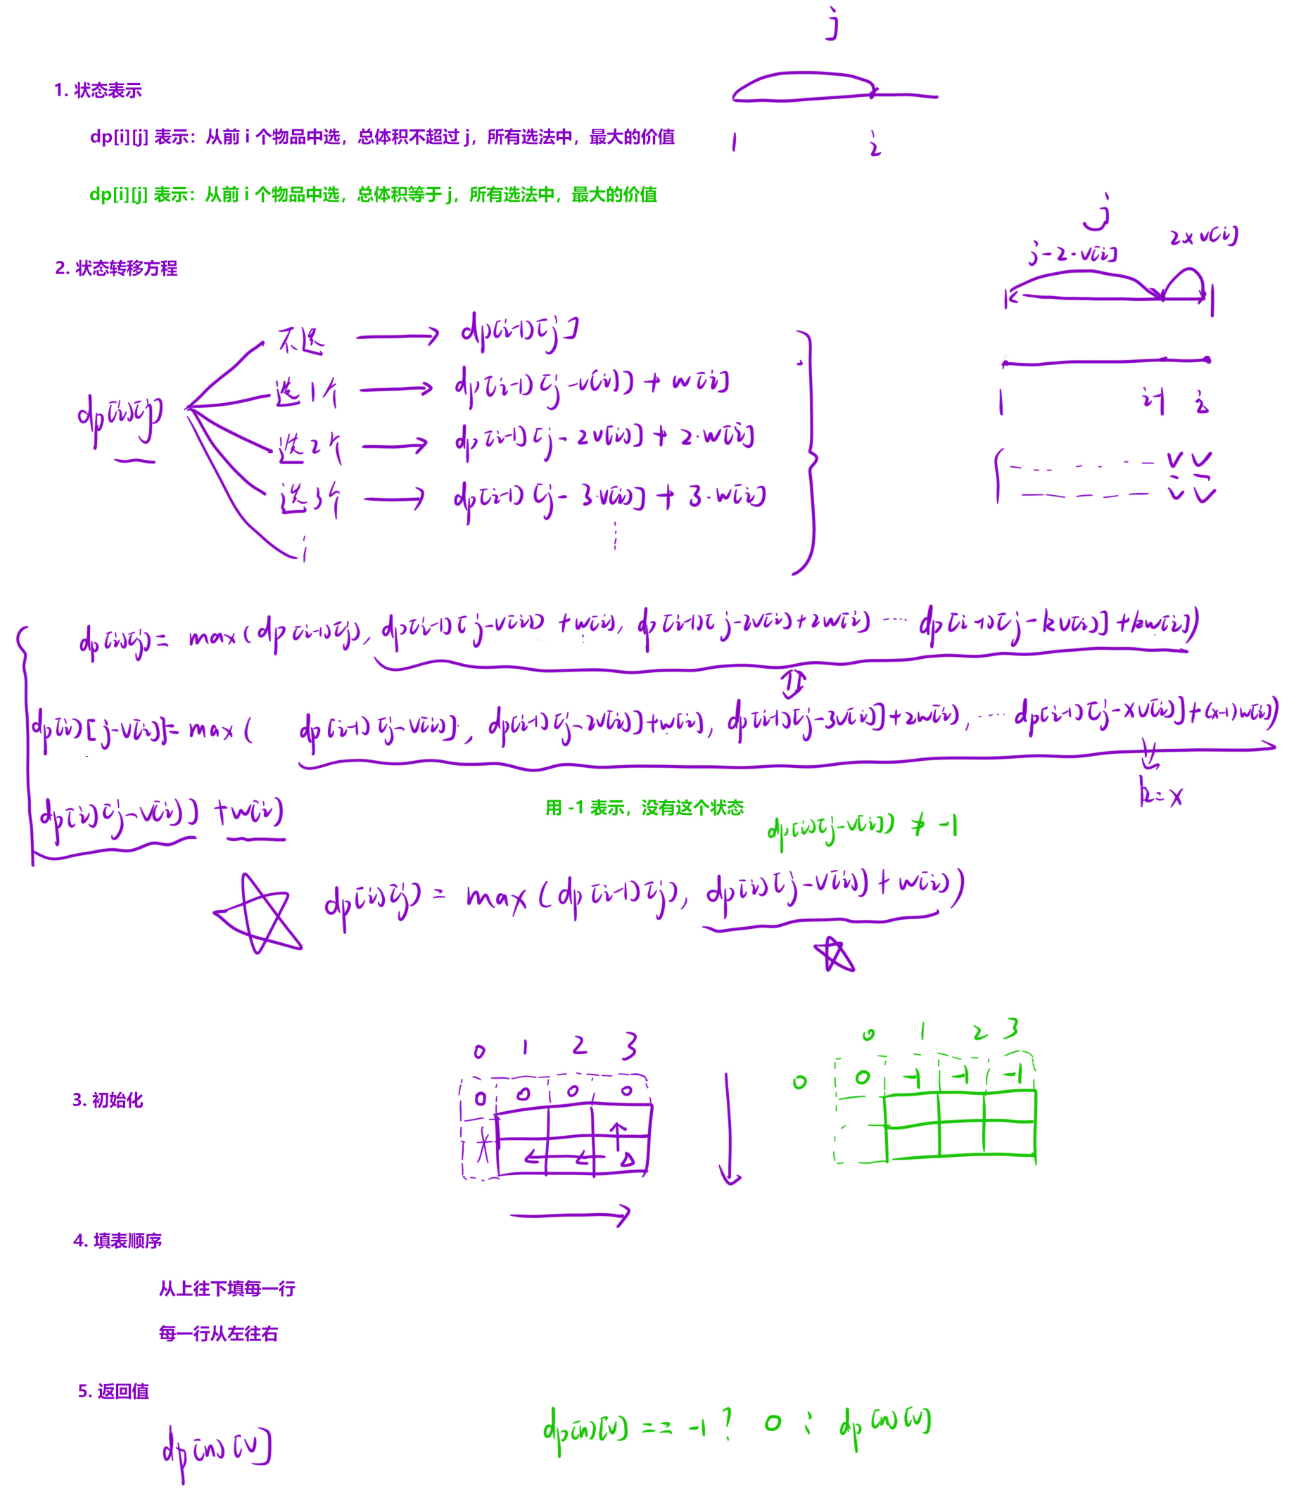 j
1. 状态表示
dp[i][j] 表示：从前 i 个物品中选，总体积不超过 j，所有选法中，最大的价值
1 i
dp[i][j] 表示：从前 i 个物品中选，总体积等于 j，所有选法中，最大的价值
j
j-2·v[i] 2×v[i]
2. 状态转移方程
dp[i][j]
不选 → dp[i-1][j]
选1个 → dp[i-1][j-v[i]] + w[i]
选2个 → dp[i-1][j-2v[i]] + 2·w[i]
选3个 → dp[i-1][j-3·v[i]] + 3·w[i]
1 i-1 i
dp[i][j] = max(dp[i-1][j], dp[i-1][j-v[i]] + w[i], dp[i-1][j-2v[i]+2w[i] ... dp[i-1][j-kv[i]]+kw[i])
dp[i][j-v[i]] = max( dp[i-1][j-v[i]], dp[i-1][j-2v[i]]+w[i], dp[i-1][j-3v[i]]+2w[i], ... dp[i-1][j-xv[i]]+(x-1)w[i])
k=x
dp[i][j-v[i]] + w[i]
用 -1 表示，没有这个状态
dp[i][j-v[i]] ≠ -1
dp[i][j] = max(dp[i-1][j], dp[i][j-v[i]]+w[i])
3. 初始化
0 1 2 3
0 0 0 0
0 1 2 3
0 0 -1 -1 -1
4. 填表顺序
从上往下填每一行
每一行从左往右
5. 返回值
dp[n][V]
dp[n][V] == -1 ? 0 : dp[n][V]